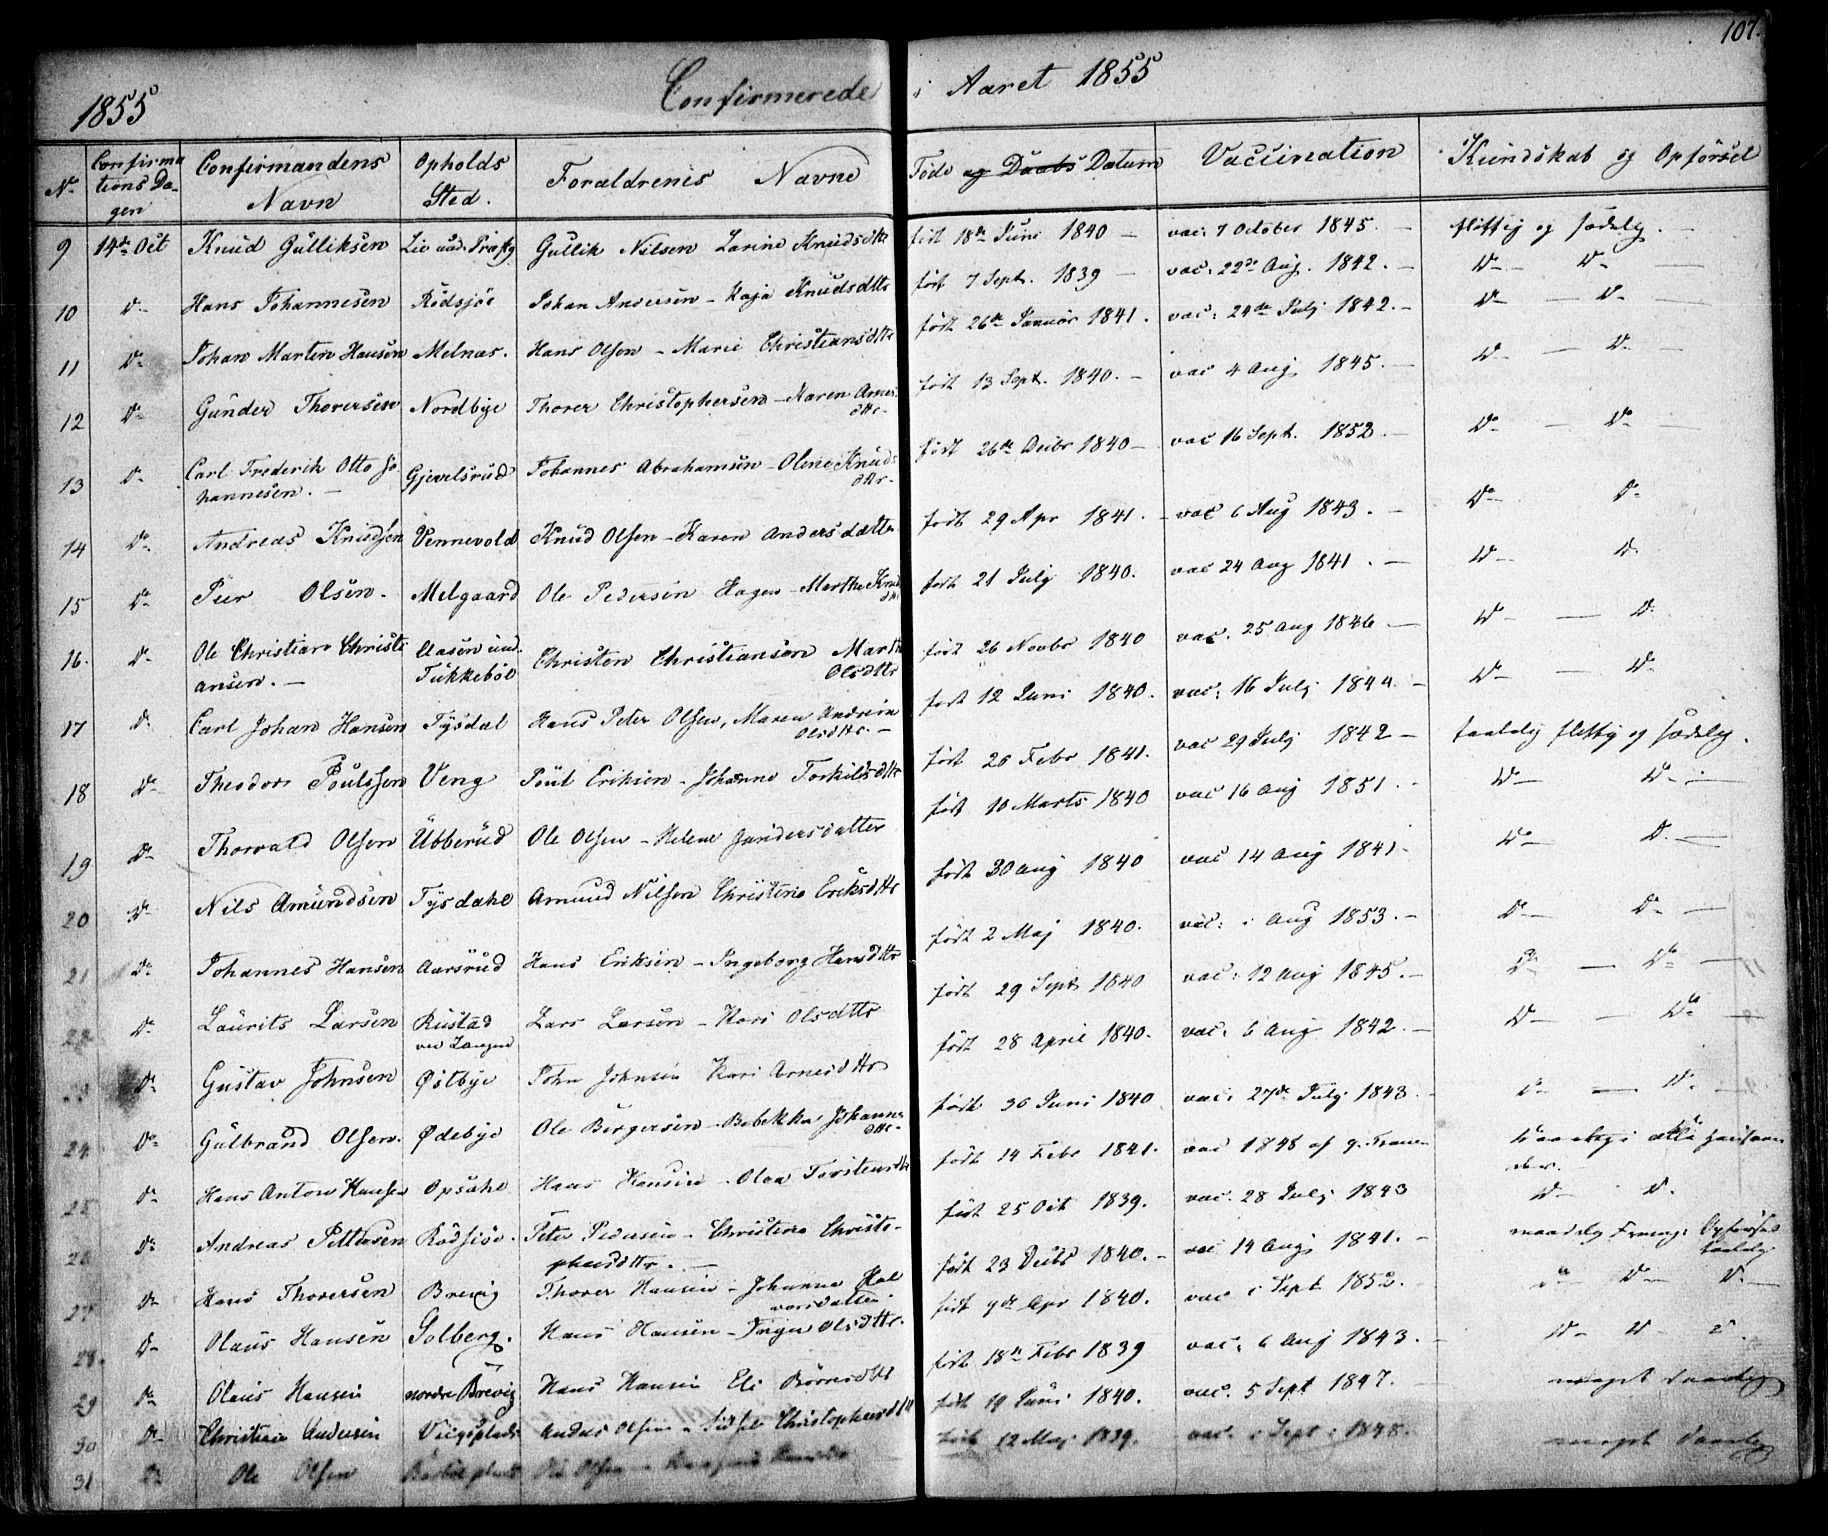 107.
1855 Confirmerede i Aaret 1855
No Confirmations Dagen Confirmandens Navn Opholds Sted. Forældrenes Navne Føde og Daabs Datum Vaccination Kundskab og Opførsel
9 14de Oct Knud Gulliksen Lie Gullik Nilsen Larine Knudsdtr født 18de Juni 1840 — vac: 7 October 1845. — flittig og sædelig. —
10 Do Hans Johannesen Rødsjøe Johan Andersen – Kaja Knudsdttr født 7 Sept. 1839 — vac: 22de Aug. 1842. — Do — Do —
11 Do Johan Marten Hansen Melnæs. Hans Olsen – Marie Christiansdttr født 26de Januar 1841. vac: 24de July 1842. — Do — Do —
12 Do Gunder Thorersen Nordbye Thorer Christophersen – Karen Arnesdttr. født 13 Sept. 1840. — vac 4 Aug 1845. — Do — Do —
13 Do Carl Frederik Otto Johannesen. — Gjevelsrud Johannes Abrahamsen – Olene Knudsdttr. født 26de Decbr 1840 — vac 16 Sept. 1852. — Do — Do —
14 Do Andreas Knudsen Vennevold Knud Olsen – Karen Andersdatter født 29 Apr 1841. — vac 6 Aug 1843. — Do Do
15 Do Peer Olsen. Melgaard Ole Pedersen Hagen – Marthe født 21 July 1840. vac 24 Aug 1841. — Do Do
16. Do Ole Christian Christiansen. — Aasen und. Tukkebøl Christen Christiansen Marth Olsdttr født 26 Novbr 1840 vac. 25 Aug 1846. — Do — Do
17 Do Carl Johan Hansen Tysdal Hans Peter Olsen, Maren Andrea Olsdttr. — født 12 Juni 1840. vac: 16 July 1844. — Do — Do
18 Do Theodor Poulssen Veng Poul Eriksen – Johanne Torkildsdttr født 26 Febr 1841. vac 29 July 1842 — taalelig flittig og sædelig.
19 Do Thorvald Olsen Ubberud Ole Olsen – Helene født 10 Marts 1840 vac 16 Aug 1851. Do — Do —
20 Do Nils Amundsen Tysdahl Amund Nilsen Christine Eriksdttr født 30 Aug 1840 vac 14 Aug 1841. Do — Do —
21 Do Johannes Hansen Aarsrud Hans Eriksen – Ingeborg Hansdttr født 2 Maj 1840. vac: i Aug 1853. — Do — Do —
22 Do Laurits Larsen Rustad ved Langen Lars Larsen – Kari Olsdttr født 29 Sept 1840 vac: 12 Aug 1845. — Do — Do —
23 Do Gustav Johnsen Østbye John Johnsen Kari Arnesdttr født 28 April 1840. vac: 6 Aug 1842. — Do — Do —
24 Do Gulbrand Olsen. Ødebye Ole Børgersen – Rebekka Johannesdttr. født 30 Juni 1840 vac: 27de July 1843. Do — Do —
25 Do Hans Anton Hansen Opsahl Hans Hansen – Olea Torstensdttr født 14 Febr 1841. vac 1848 af
26 Do Andreas Pettersen Rødsjøe. Peter Pedersen – Christine Christophersdttr. — født 25 Oct 1839. vac. 28 July 1843 Do Do
27 Do Hans Thorersen Brevig Thorer Hansen – Johanne Halvorsdatter. født 23 Decbr 1840. — vac 14 Aug 1841. — maadelig Opførsel taalelig
28. Do Olaus Hansen Solberg. Hans Hansen – Inger Olsdttr. født 9de Apr 1840. vac i Sept 1852. — Do Do Do —
29 Do Olaus Hansen nordre Brevig Hans Hansen Eli Børresdttr født 18de Febr 1839 vac. 6 Aug 1843. — Do — Do — Do
30 Do Christian Andersen Vugsplads Anders Olsen – Sidsel Christophersdttr født 19 Juni 1840. vac. 5 Sept 1847. — meget
31 Do Ole Olsen Ole Olsen født 12 Maj 1839. vac. i Sept 1848. meget